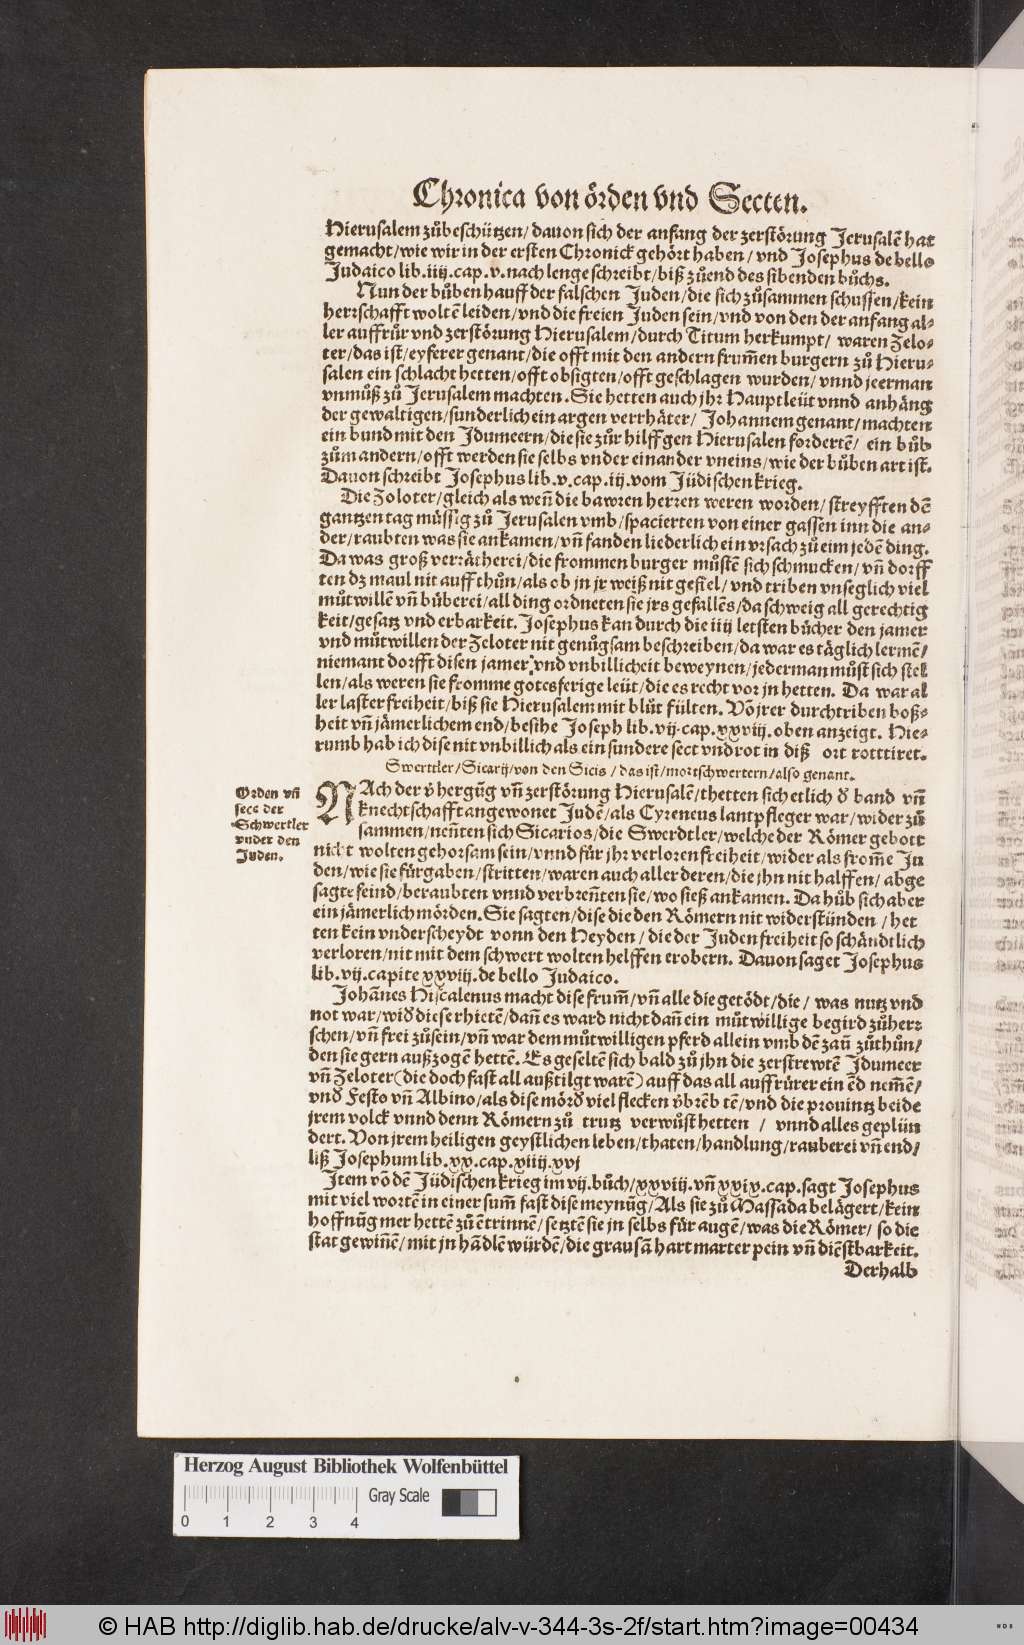 Chronica von örden vnd Secten.
Hierusalem zůbeschützen/ dauon sich der anfang der zerstörung Jerusalē hat
gemacht/wie wir in der ersten Chronick gehört haben/ vnd Josephus de bello
Judaico lib.iiij.cap.v.nach lenge schreibt/biß zůend des sibenden bůchs.
Nun der bůben hauff der falschen Juden/die sich zůsammen schussen/kein
herrschafft woltē leiden/vnd die freien Juden sein/vnd von den der anfang al-
ler auffrůr vnd zerstörung Hierusalem/durch Titum herkumpt/ waren Zelo-
ter/das ist/eyferer genant/die offt mit den andern frum̄en burgern zů Hieru-
salen ein schlacht hetten/offt obsigten/offt geschlagen wurden/ vnnd jeerman
vnmůß zů Jerusalem machten. Sie hetten auch jhr Hauptleüt vnnd anhäng
der gewaltigen/sunderlich ein argen verrhäter/ Johannem genant/machten
ein bund mit den Jdumeern/die sie zůr hilff gen Hierusalen fordertē/ ein bůb
zům andern/offt werden sie selbs vnder einander vneins/wie der bůben art ist.
Dauon schreibt Josephus lib.v.cap.iij.vom Jüdischen krieg.
Die Zoloter/gleich als weñ die bawren herren weren worden/streyfften dē
gantzen tag müssig zů Jerusalen vmb/spacierten von einer gassen inn die an-
der/raubten was sie ankamen/vñ fanden liederlich ein vrsach zů eim jedē ding.
Da was groß verrätherei/die frommen burger můstē sich schmucken/ vñ dorff
ten dz maul nit auff thůn/als ob jn jr weiß nit gefiel/vnd triben vnseglich viel
můtwillē vñ bůberei/all ding ordneten sie jrs gefallēs/da schweig all gerechtig
keit/gesatz vnd erbarkeit. Josephus kan durch die iiij letsten bücher den jamer
vnd můtwillen der Zeloter nit genůgsam beschreiben/da war es täglich lermē/
niemant dorfft disen jamer vnd vnbillicheit beweynen/jederman můst sich stel
len/als weren sie fromme gotesferige leüt/die es recht vor jn hetten. Da war al
ler laster freiheit/biß sie Hierusalem mit blůt fülten. Vō jrer durchtriben boß-
heit vñ jämerlichem end/besihe Joseph lib.vij.cap.xxviij.oben anzeigt. Hie-
rumb hab ich dise nit vnbillich als ein sundere sect vnd rot in diß ort rotttiret.
Swerttler/Sicarij/von den Sicis/das ist/mortschwertern/also genant.
Orden vñ
sect der
Schwertler
vnder den
Juden.
NAch der v̈hergūg vñ zerstörung Hierusalē/thetten sich etlich ď band vñ
knechtschafft angewonet Judē/als Cyreneus lantpfleger war/wider zů
sammen/neñten sich Sicarios/die Swerdtler/welche der Römer gebott
nicht wolten gehorsam sein/vnnd für jhr verloren freiheit/wider als from̄e Ju
den/wie sie fürgaben/stritten/waren auch aller deren/die jhn nit halffen/ abge
sagte feind/beraubten vnnd verbreñten sie/wo sieß ankamen. Da hůb sich aber
ein jämerlich mörden. Sie sagten/dise die den Römern nit widerstünden/het
ten kein vnderscheydt vonn den Heyden/die der Juden freiheit so schändtlich
verloren/nit mit dem schwert wolten helffen erobern. Dauon saget Josephus
lib.vij.capite xxviij.de bello Judaico.
Johāñes Hiscalenus macht dise frum̄/vñ alle die getödt/die/ was nutz vnd
not war/wiď dieser hietē/dañ es ward nicht dañ ein můtwillige begird zůherr
schen/vñ frei zůsein/vñ war dem můtwilligen pferd allein vmb dē zau zůthůn/
den sie gern außzogē hettē. Es geseltē sich bald zů jhn die zerstrewtē Jdumeer
vñ Zeloter(die doch fast all außtilgt warē)auff das all auffrürer ein ēd nem̄ē/
vnď Festo vñ Albino/als dise mörď viel flecken v̈brēb tē/vnd die prouintz beide
jrem volck vnnd denn Römern zů trutz verwůst hetten / vnnd alles geplün
dert. Von jrem heiligen geystlichen leben/thaten/handlung/rauberei vñ end/
liß Josephum lib.xx.cap.xiiij.xvj
Jtem vō dē Jüdischen krieg im vij.bůch/xxviij.vñ xxix.cap.sagt Josephus
mit viel wortē in einer sum̄ fast dise meynūg/Als sie zů Massada belägert/kein
hoffnūg mer hettē zů ētrinnē/setztē sie jn selbs für augē/was die Römer/ so die
stat gewiñē/mit jn hādlē würdē/die grausā hart marter pein vñ diēstbarkeit.
Derhalb
Herzog August Bibliothek Wolfenbüttel
Gray Scale
0 1 2 3 4
© HAB http://diglib.hab.de/drucke/alv-v-344-3s-2f/start.htm?image=00434